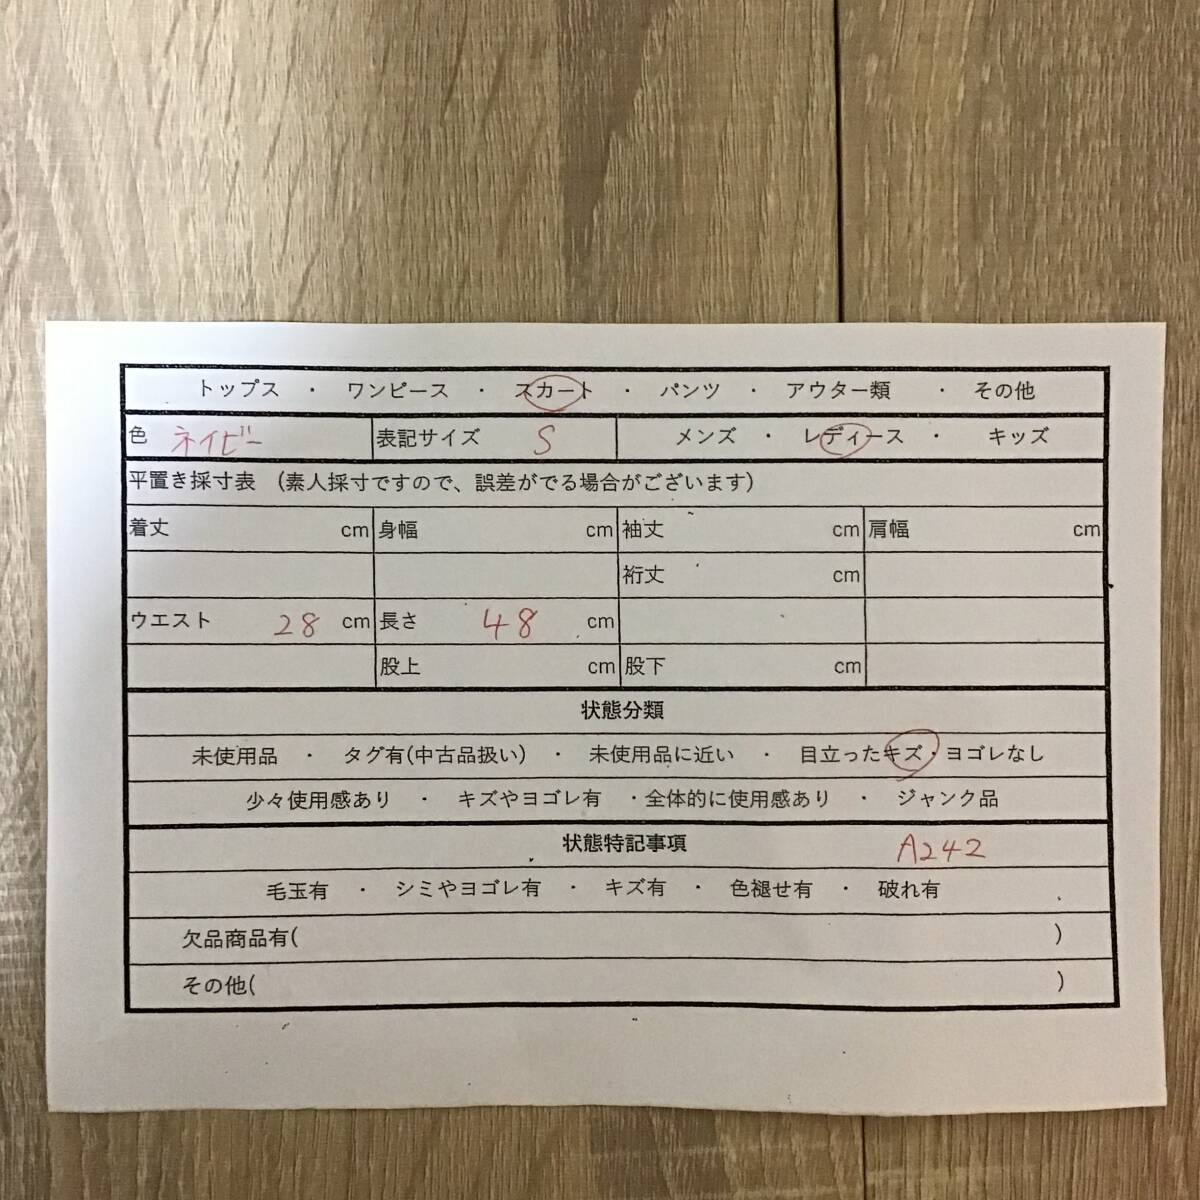 トップス ・ ワンピース ・ スカート ・ パンツ ・ アウター類 ・ その他
色 ネイビー 表記サイズ S メンズ ・ レディース ・ キッズ
平置き採寸表 (素人採寸ですので、誤差がでる場合がございます)
着丈 cm 身幅 cm 袖丈 cm 肩幅 cm
裄丈 cm
ウエスト 28 cm 長さ 48 cm
股上 cm 股下 cm
状態分類
未使用品 ・ タグ有(中古品扱い) ・ 未使用品に近い ・ 目立ったキズ・ヨゴレなし
少々使用感あり ・ キズやヨゴレ有 ・全体的に使用感あり ・ ジャンク品
状態特記事項 A242
毛玉有 ・ シミやヨゴレ有 ・ キズ有 ・ 色褪せ有 ・ 破れ有
欠品商品有( )
その他( )